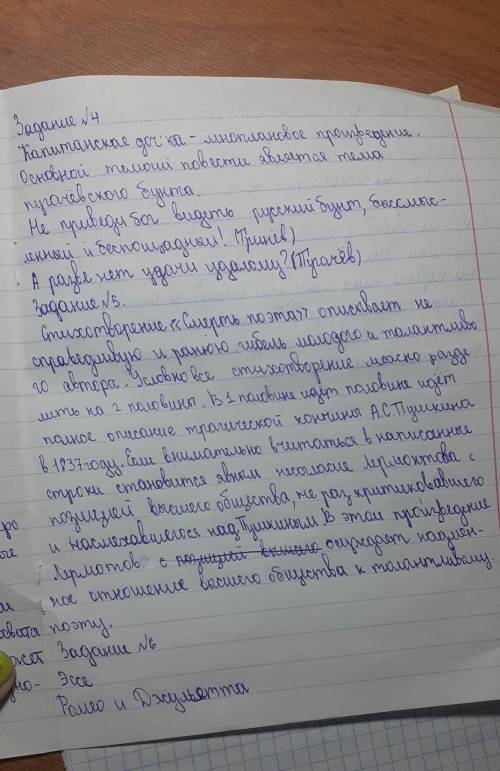 Задание №4
Капитанская дочка - мноплановое произведение.
Основной темоий повести явлется тема
пугачёвского бунта.
Не приведи бог видеть русский бунт, бысмыс-
ленней и беспощадней! (Гринёв)
А разве нет удачи удалому? (Пугачёв)
Задание №5.
Стихотворение «Смерть поэта» описквает не
справедливую и ранюю гибель молодого и талантливо
го автора. Условно все стихотворение можно разде
лить на 2 половины. В 1 половине идёт половине идёт
полное описание трагической кончины А.С.Пушкина
в 1837 году. Если внимательно вчитаться в написанные
строки становится явным несогласие Лермонтова с
позицией высшего общества, не раз критиковавшего
и насмехавшегося над Пушкиным. В этом произведение
Лермотов с позицией высшего осуждает надмен-
ное отношение высшего общества к талантливому
поэту.
Задание №6
Эссе
Ромео и Джульетта